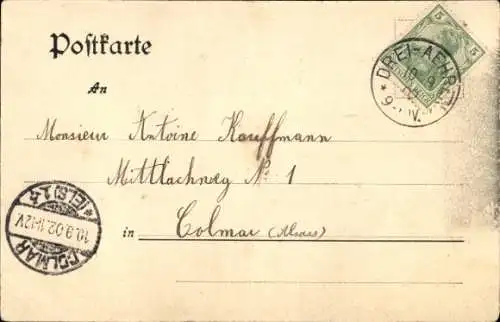 Postkarte
5 5
DREI-AEHREN
10 9
9-
V.
An
Monsieur Antoine Kauffmann
Mittlachweg No 1
in Colmar (Alsace)
(ELS) 1
10.9.02.
COLMAR